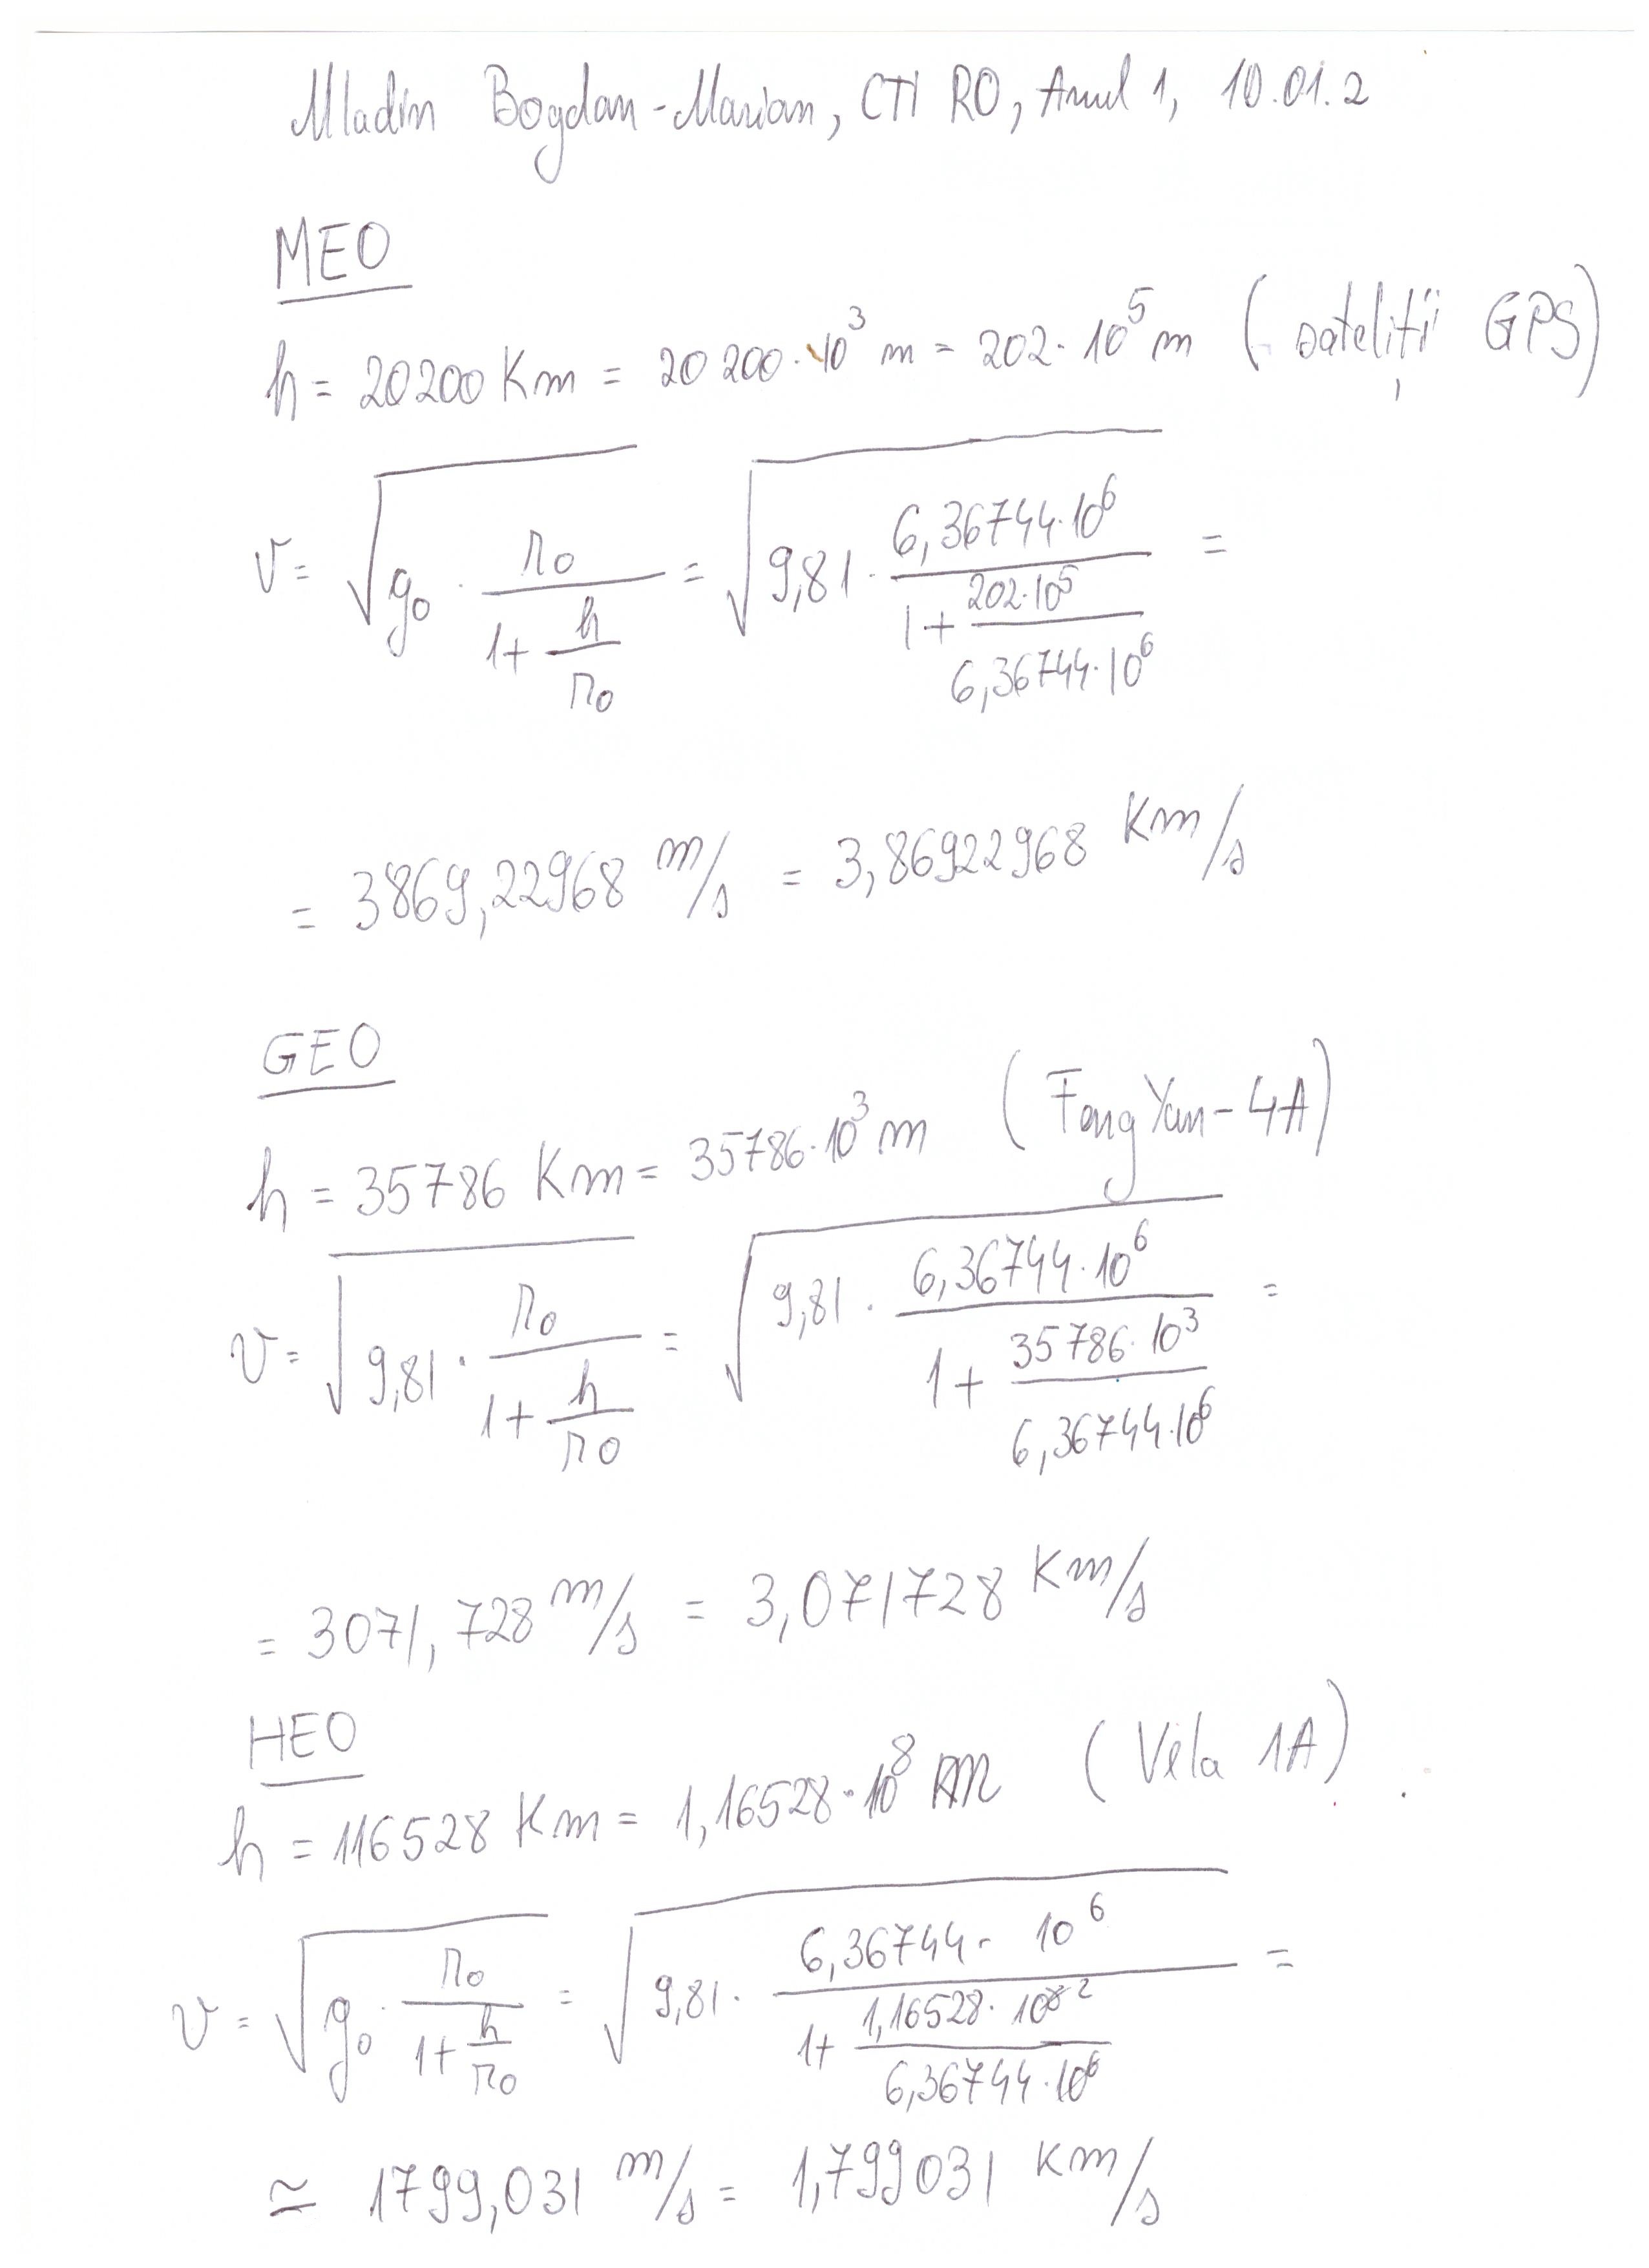 Mladin Bogdan-Marian, CTI RO, Anul 1, 10.01.2
MEO
h = 20200 Km = 20 200·10³ m = 202·10⁵ m (sateliții GPS)
v = √(g₀ · r₀/(1+h/r₀)) = √(9,81 · 6,36744·10⁶/(1+202·10⁵/6,36744·10⁶)) =
= 3869,22968 m/s = 3,86922968 Km/s
GEO
h = 35786 Km = 35786·10³ m (FengYun-4A)
v = √(9,81 · r₀/(1+h/r₀)) = √(9,81 · 6,36744·10⁶/(1+35786·10³/6,36744·10⁶)) =
= 3071,728 m/s = 3,071728 Km/s
HEO
h = 116528 Km = 1,16528·10⁸ m (Vela 1A)
v = √(g₀ · r₀/(1+h/r₀)) = √(9,81 · 6,36744·10⁶/(1+1,16528·10⁸ ²/6,36744·10⁶)) =
≃ 1799,031 m/s = 1,799031 Km/s